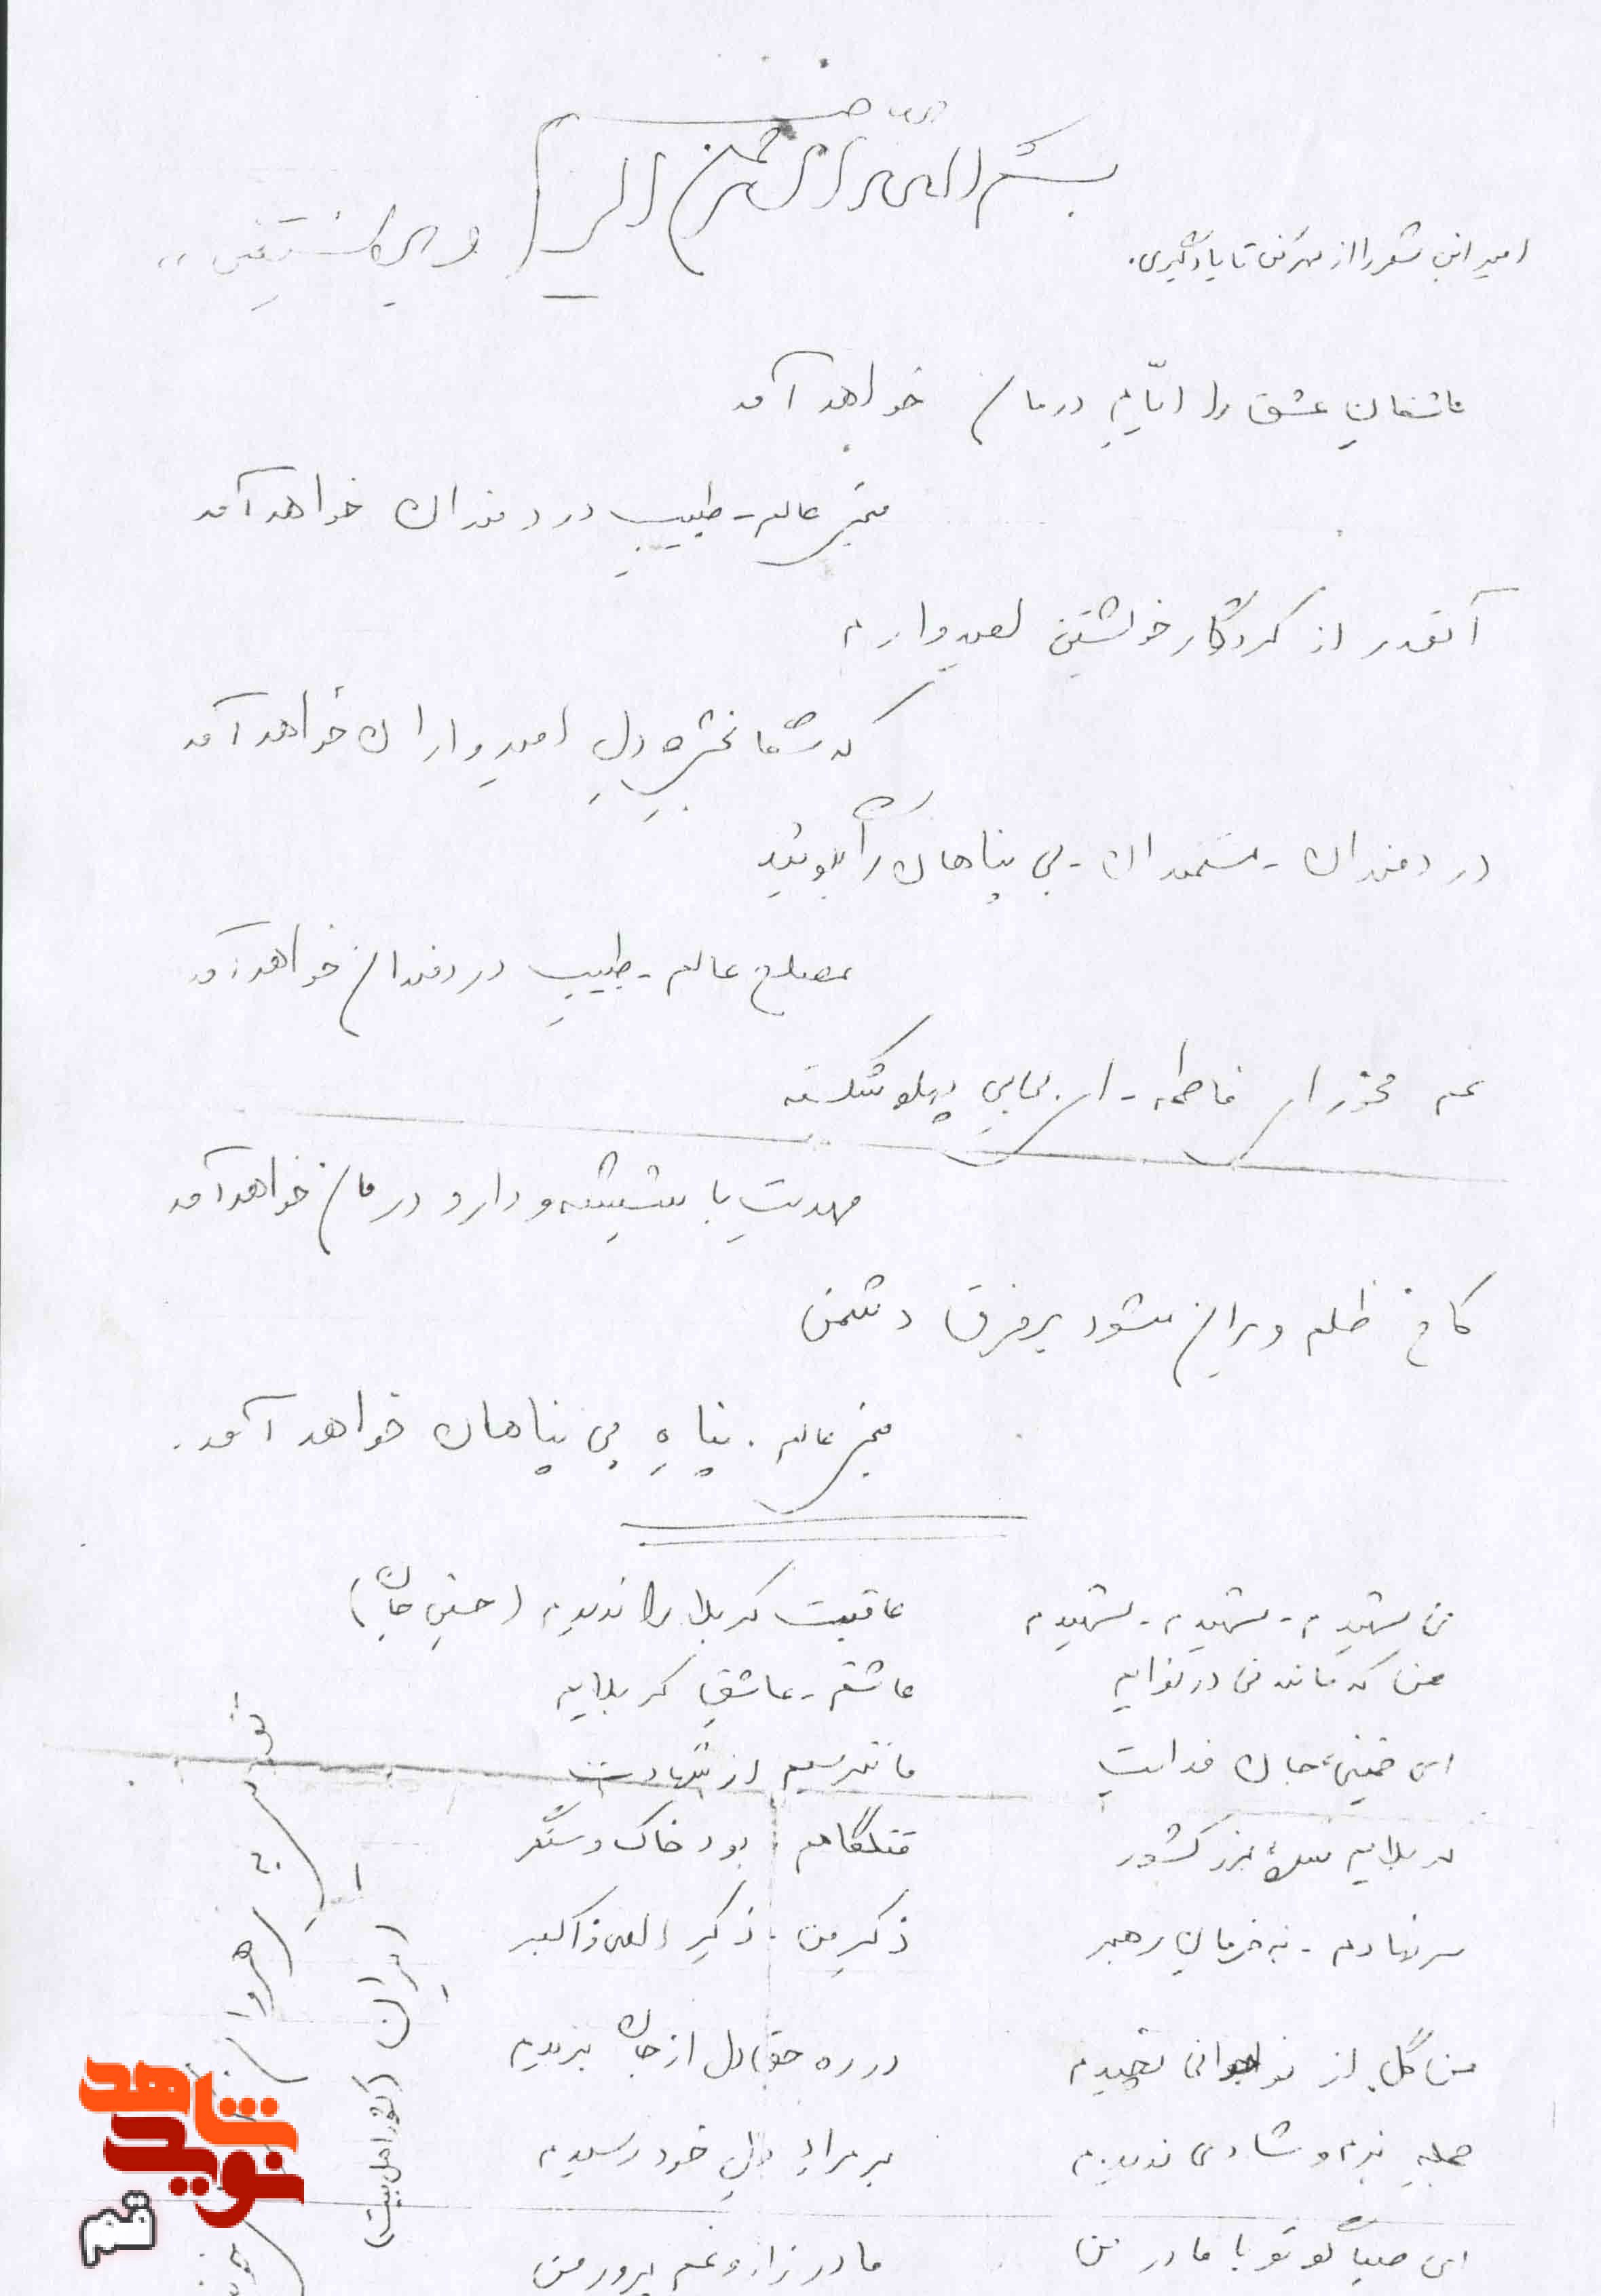 بسم الله الرحمن الرحیم و به نستعین
امیر این شعر را از بر کن تا یادگیری.
عاشقان عشق را ایّام درمان خواهد آمد
منجی عالم - طبیب دردمندان خواهد آمد
آنقدر از کردگار خویشتن امیدوارم
که شفا بخش دل امیدواران خواهد آمد
دردمندان - مستمندان - بی پناهان را بگوئید
مصلح عالم - طبیب دردمندان خواهد آمد
غم مخور ای فاطمه - ای بانوی پهلو شکسته
مهدیت با شیشه و دارو درمان خواهد آمد
کاخ ظلم ویران میشود بر فرق دشمن
منجی عالم . پناه بی پناهان خواهد آمد.
من شهیدم - شهیدم - شهیدم عاقبت کربلا را ندیدم (حسین جان)
من که مانند نی در نوایم عاشقم - عاشق کربلایم
ای خمینی جان فدایت ما نترسیم از شهادت
کربلایم شده مرز کشور قتلگاهم بود خاک و سنگر
سر نهادم - به فرمان رهبر ذکر من . ذکر الله اکبر
من گل از نوجوانی نچیدم در ره حق دل از جان بریدم
حجله بزم و شادی ندیدم بر مراد دل خود رسیدم
ای صبا گو تو با مادر من مادر زار و غم پرور من
ایران (کشور اهل بیت)
نوید شاهد
قم